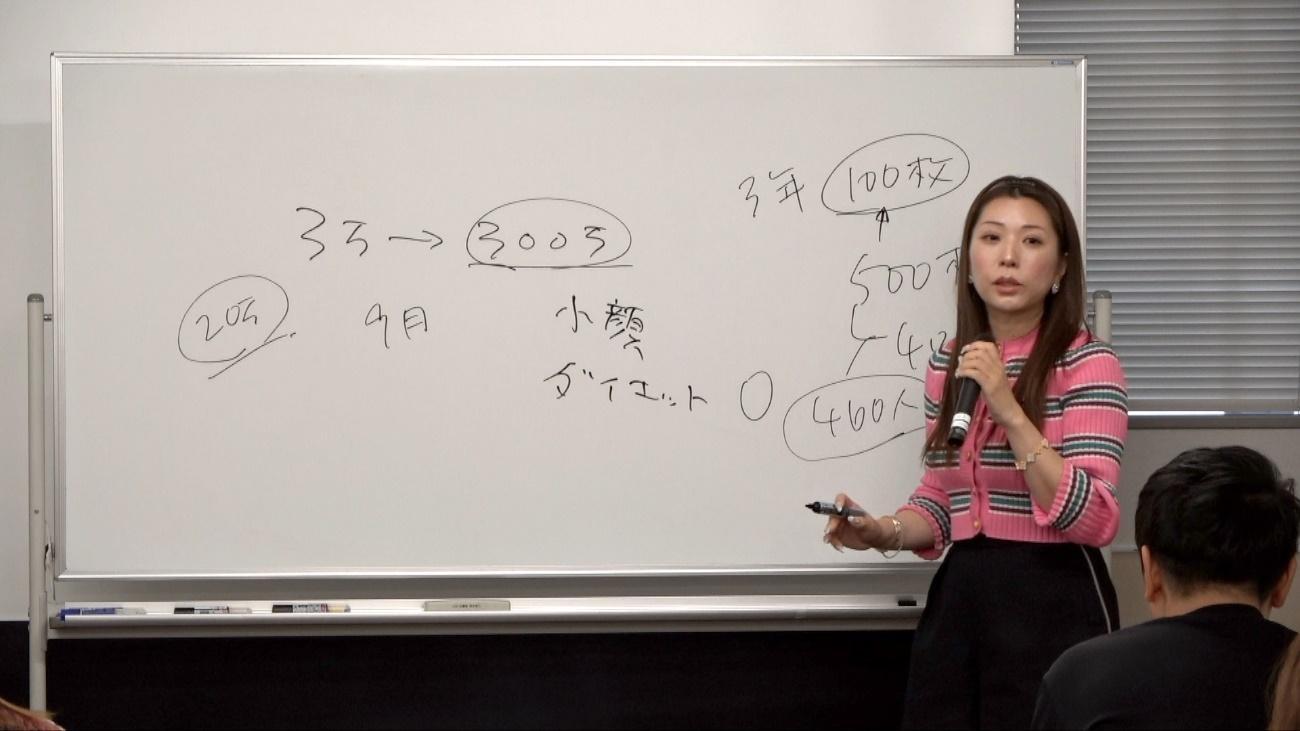 3万→300万
20万
9月
小顔
ダイエット
0
3年 100枚
↑
500
40
400人